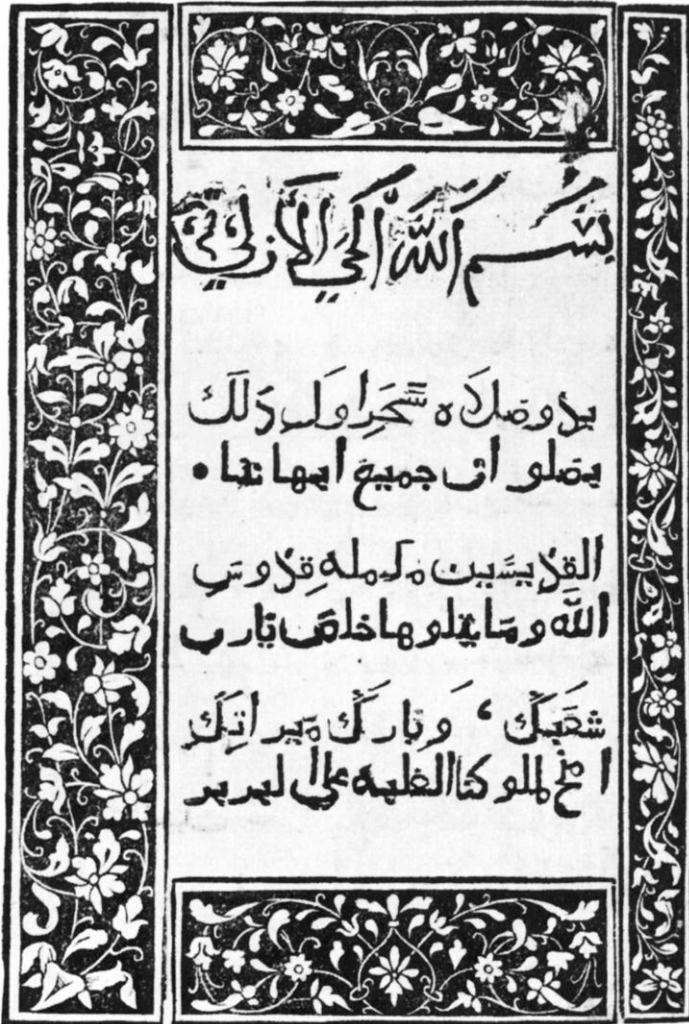 بِسْمِ اللّٰه الحَي الاَزلي
يدو صلَاه سَّحَرِ اوَل ذلَك
يصلو اتى جميع ابهاتنا •
القديسين مكمله قدوسِ
اللّٰه ومَا يتلوها خلص يارب
شعَبَك ، وَبَارَك ميراتك
امنح لملوكنا الغلبه على البربر